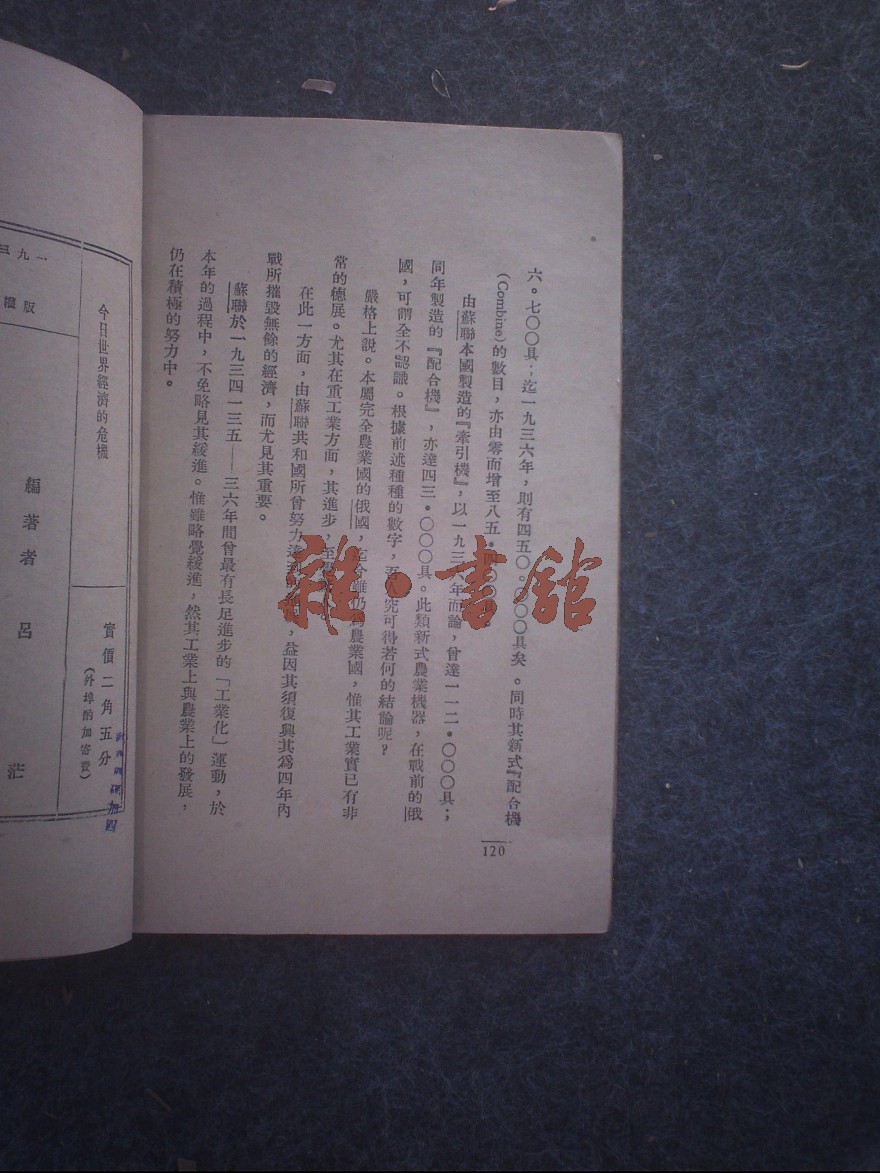 六。七〇〇具；迄一九三六年，則有四五〇・〇〇〇具矣。同時其新式『配合機
(Combine)的數目，亦由零而增至八五・〇〇具
由蘇聯本國製造的『牽引機』，以一九三六年而論，曾達一一二・〇〇〇具；
同年製造的『配合機』，亦達四三・〇〇〇具。此類新式農業機器，在戰前的俄
國，可謂全不認識。根據前述種種的數字，吾人究可得若何的結論呢？
嚴格上說。本屬完全農業國的俄國，迄今雖仍為農業國，惟其工業實已有非
常的德展。尤其在重工業方面，其進步，至
在此一方面，由蘇聯共和國所曾努力，益因其須復興其爲四年內
戰所摧毀無餘的經濟，而尤見其重要。
蘇聯於一九三四—三五——三六年間曾最有長足進步的「工業化」運動，於
本年的過程中，不免略見其綏進。惟雖略覺綏進，然其工業上與農業上的發展，
仍在積極的努力中。
120
雜・書館
一九三
版權
今日世界經濟的危機
實價二角五分
(外埠酌加寄費)
編著者 呂茫